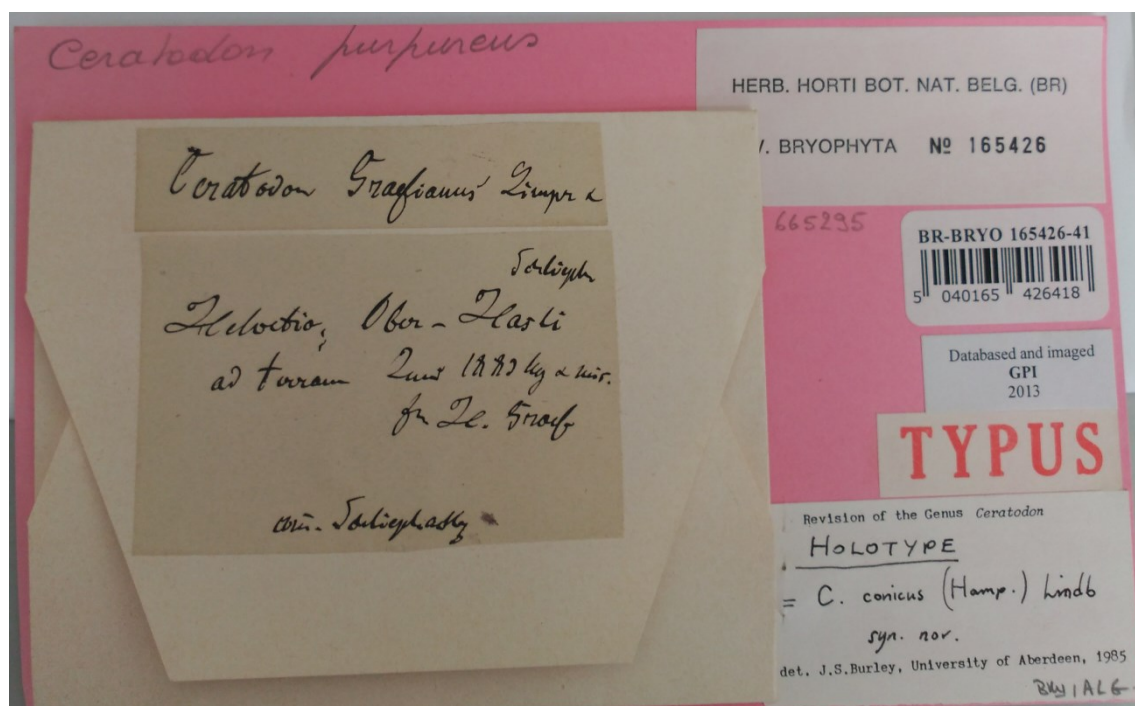 Ceratodon purpureus
HERB. HORTI BOT. NAT. BELG. (BR)
V. BRYOPHYTA Nº 165426
665295
BR-BRYO 165426-41
5 040165 426418
Databased and imaged
GPI
2013
TYPUS
Revision of the Genus Ceratodon
HOLOTYPE
= C. conicus (Hamp.) Lindb
syn. nov.
det. J.S.Burley, University of Aberdeen, 1985
Ceratodon Graefianus Limpr &
Schlieph
Helvetia, Ober-Hasli
ad terram
H. Graef
Schliephacky